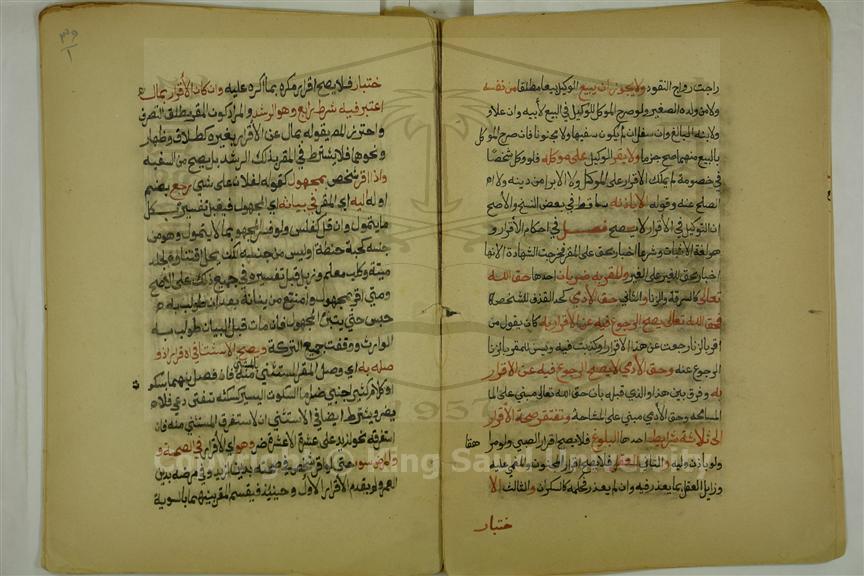 راجت رواج النقود ولا يجوز ان يبيع الوكيل بيعا مطلقا من نفسه
ولا من ولده الصغير ولو صرح الموكل للوكيل في البيع لأبيه وان علا و
ولابنه البالغ وان سفل ان لم يكن سفيها ولا مجنونا فان صرح الموكل
بالبيع منهما صح جزما ولا يقر الوكيل على موكله فلو وكل شخصا
في خصومة لم يملك الاقرار على الموكل ولا الابرا من دينه ولا
الصلح عنه وقوله الا باذنه ساقط في بعض النسخ والاصح
ان التوكيل في الاقرار لا يصح فصل في احكام الاقرار و
هو لغة الاثبات وشرعا اخبار بحق على المقر فخرجت الشهادة لانها
اخبار بحق للغير على الغير والمقر به ضربان احدهما حق الله
تعالى كالسرقة والزنا والثاني حق الآدمي كحد القذف لشخص
فحق الله تعالى يصح الرجوع فيه عن الاقرار به كان يقول من
اقر بالزنا رجعت عن هذا الاقرار او كذبت فيه ويسن للمقر بالزنا
الرجوع عنه وحق الآدمي لا يصح الرجوع فيه عن الاقرار
به وفرق بين هذا والذي قبله بأن حق الله تعالى مبني على
المسامحه وحق الآدمي مبني على المشاحة وتفتقر صحة الاقرار
الى ثلاثة شرايط احدها البلوغ فلا يصح اقرار الصبي ولو مراهقا
ولو باذن وليه والثاني العقل فلا يصح اقرار المجنون والمغمى عليه
وزايل العقل بما يعذر فيه وان لم يعذر فحكمه كالسكران والثالث الا
ختبار
٣٩
١
ختيار فلا يصح اقرار مكره بما اكره عليه وان كان الاقرار بمال
اعتبر فيه شرط رابع وهو الرشد والمراد كون المقر مطلق التصرف
واحترز المص بقوله بمال عن الاقرار بغيره كطلاق وظهار
ونحوها فلا يشترط في المقر بذلك الرشد بل يصح من السفيه
واذا اقر شخص بمجهول كقوله لفلان علي شي رجع بضم
اوله اليه اي المقر في بيانه اي المجهول فيقبل تفسيره بكل
ما يتمول وان قل كفلس ولو فسر المجهول بما لا يتمول وهو من
جنسه كحبة حنطة او ليس من جنسه لكن يحل اقتناؤه كجلد
ميتة وكلب معلم وزبل قبل تفسيره في جميع ذلك على الاصح
ومتى اقر بمجهول وامتنع من بيانه بعد ان طولب به
حبس حتى يبين المجهول فان مات قبل البيان طولب به
الوارث ووقفت جميع التركة ويصح الاستثنا في الاقرار اذا و
صله به اي وصل المقر المستثنى بالمستثنى منه فان فصل بينهما سكوت
او كلام كثير اجنبي ضر اما السكوت اليسير كسكتة تنفس فلا
يضر ويشترط ايضا في الاستثنى ان لا يستغرق المستثنى منه فان
استغرقه نحو لزيد علي عشرة الا عشرة ضر وهو اي الاقرار في الصحة
والمرض سوا حتى لو اقر شخص في صحته بدين لزيد وفي مرضه بدين
لعمرو لم يقدم الاقرار الاول وحينئذ فيقسم المقر بينهما بالسوية
Copyright © King Saud University
1957